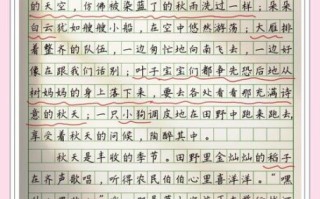 的天空，仿佛被染蓝了的秋雨洗过一样；朵朵
白云犹如艘艘小船，在空中悠然荡漾；大雁排
着整齐的队伍，一边匆忙地向南飞去，一边好
像在跟我们话别；叶子宝宝们都争先恐后地从
树妈妈的身上落下来，要去各处看看那充满诗
意的秋天；一只小狗调皮地在田野中跑来跑去，
享受着秋天的问候，陶醉其中。
秋天是丰收的季节。田野里金灿灿的稻子
在齐声歌唱，听得农民伯伯心里喜洋洋。“嘿